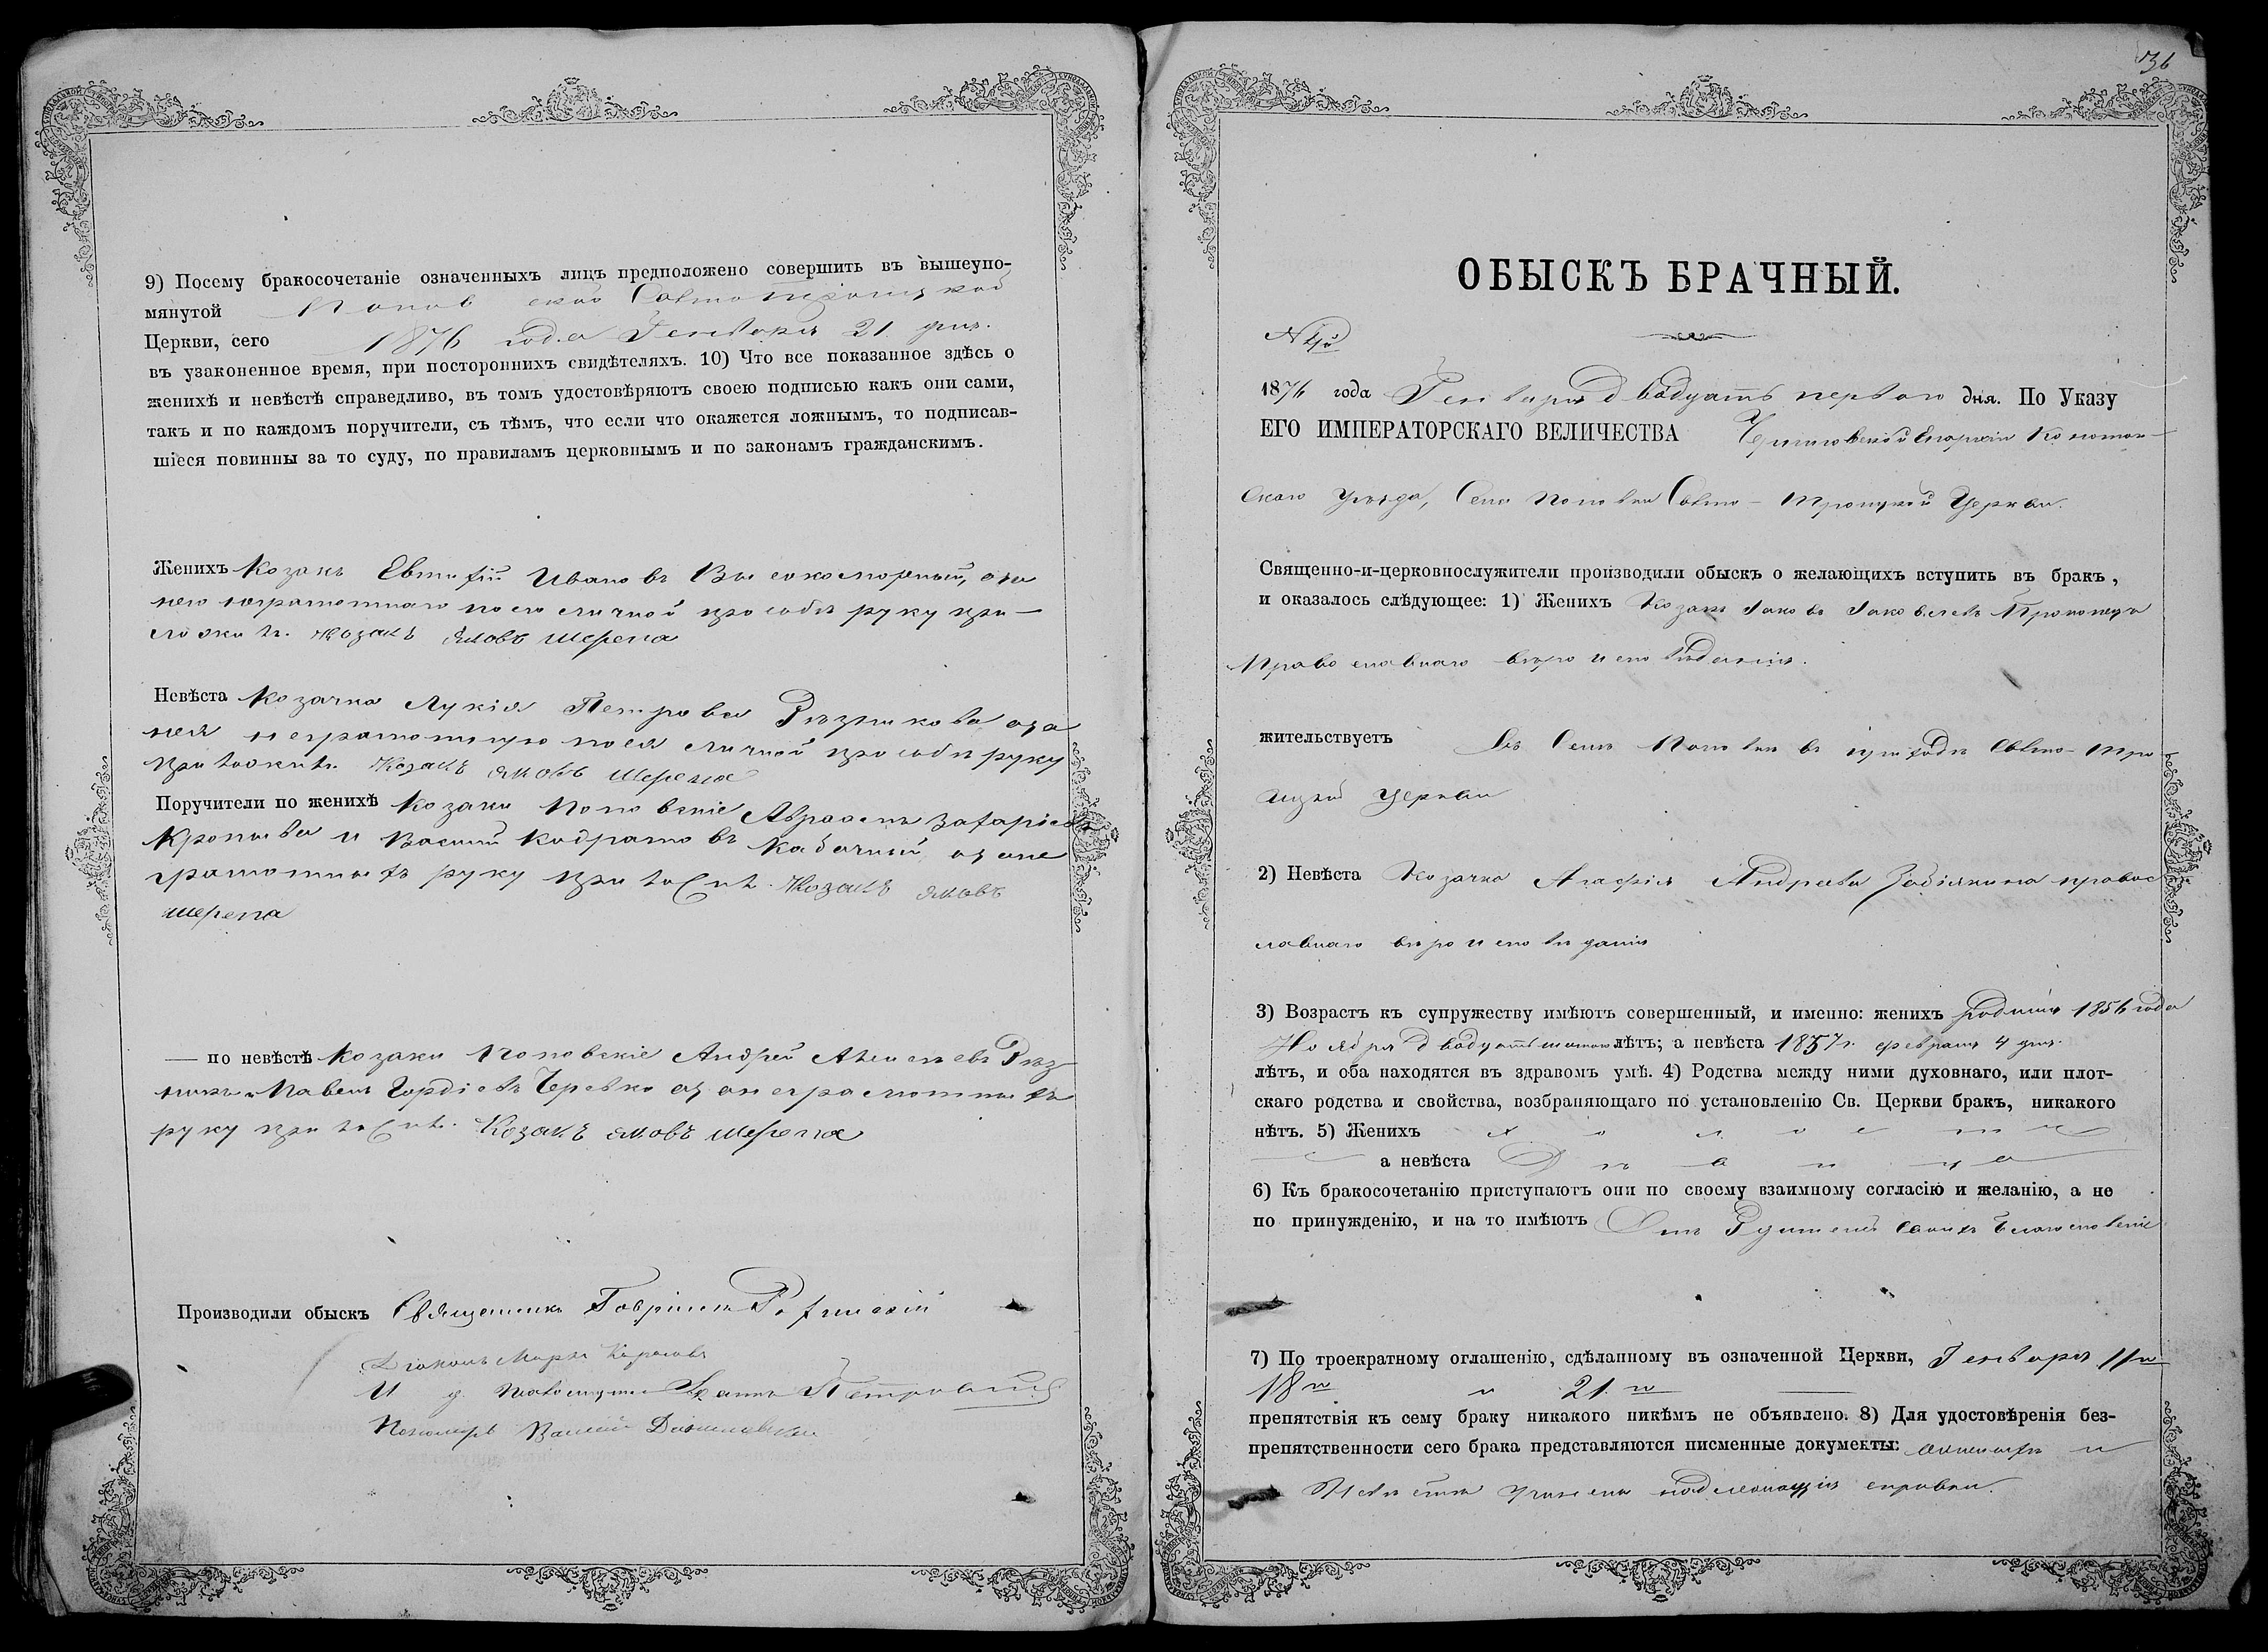 9) Посему бракосочетаніе означенныхъ лицъ предположено совершить въ вышеупо-
мянутой Поповской Свято Троицкой
Церкви, сего 1876 года Генваря 21 дня.
въ узаконенное время, при постороннихъ свидѣтеляхъ. 10) Что все показанное здѣсь о
женихѣ и невѣстѣ справедливо, въ томъ удостовѣряютъ своею подписью какъ они сами,
такъ и по каждомъ поручители, съ тѣмъ, что если что окажется ложнымъ, то подписав-
шіеся повинны за то суду, по правиламъ церковнымъ и по законамъ гражданскимъ.
Женихъ Козакъ Евтифій Ивановъ а за
него неграмотнаго по его личной прозбѣ руку при-
ложилъ. Козакъ Яковъ Шерепа
Невѣста Козачка Лукія Петрова Рѣзникова а за
нея неграмотную по ея личной прозбѣ руку
приложилъ. Козакъ Яковъ Шерепа
Поручители по женихѣ Козаки Поповскіе Авраамъ Захаріевъ
Кропива и Василій Кодратовъ Кабачный, а за не
грамотныхъ руку приложилъ. Козакъ Яковъ
Шерепа
— по невѣстѣ Козаки Поповскіе Андрей Алексѣевъ Рѣз
никъ и Павелъ Гордіевъ Черевко а за неграмотныхъ
руку приложилъ. Козакъ Яковъ Шерепа
Производили обыскъ Священникъ Гавріилъ
Діаконъ Маркъ
И. д. Псаломщика Іоаннъ Петровскій
Пономарь Василій
136
ОБЫСКЪ БРАЧНЫЙ.
№ 4й
1876 года Генваря двадцать перваго дня. По Указу
ЕГО ИМПЕРАТОРСКАГО ВЕЛИЧЕСТВА Черниговской Епархіи Конотоп-
скаго уѣзда, Села Поповки Свято-Троицкой Церкви.
Священно-и-церковнослужители производили обыскъ о желающихъ вступить въ бракъ,
и оказалось слѣдующее: 1) Женихъ Козакъ Іаковъ Іаковлевъ Прокопеца
Православнаго вѣроисповѣданія.
жительствуетъ Въ Селѣ Поповкѣ въ приходѣ Свято-Тро
ицкой Церкви
2) Невѣста Козачка Агафія Андреева Забіякина правос
лавнаго вѣроисповѣданія
3) Возрастъ къ супружеству имѣютъ совершенный, и именно: женихъ родился 1856 года
Ноября двадцать шетаго лѣтъ; а невѣста 1857 г. февраля 4 дня.
лѣтъ, и оба находятся въ здравомъ умѣ. 4) Родства между ними духовнаго, или плот-
скаго родства и свойства, возбраняющаго по установленію Св. Церкви бракъ, никакого
нѣтъ. 5) Женихъ холостъ
а невѣста Дѣвица
6) Къ бракосочетанію приступаютъ они по своему взаимному согласію и желанію, а не
по принужденію, и на то имѣютъ Отъ Родителей своихъ благословеніе
7) По троекратному оглашенію, сдѣланному въ означенной Церкви, Генваря 11го
18го и 21го
препятствія къ сему браку никакого никѣмъ не объявлено. 8) Для удостовѣренія без-
препятственности сего брака представляются писменные документы: о женихѣ и
Невѣстѣ учинены надлежащія справки.